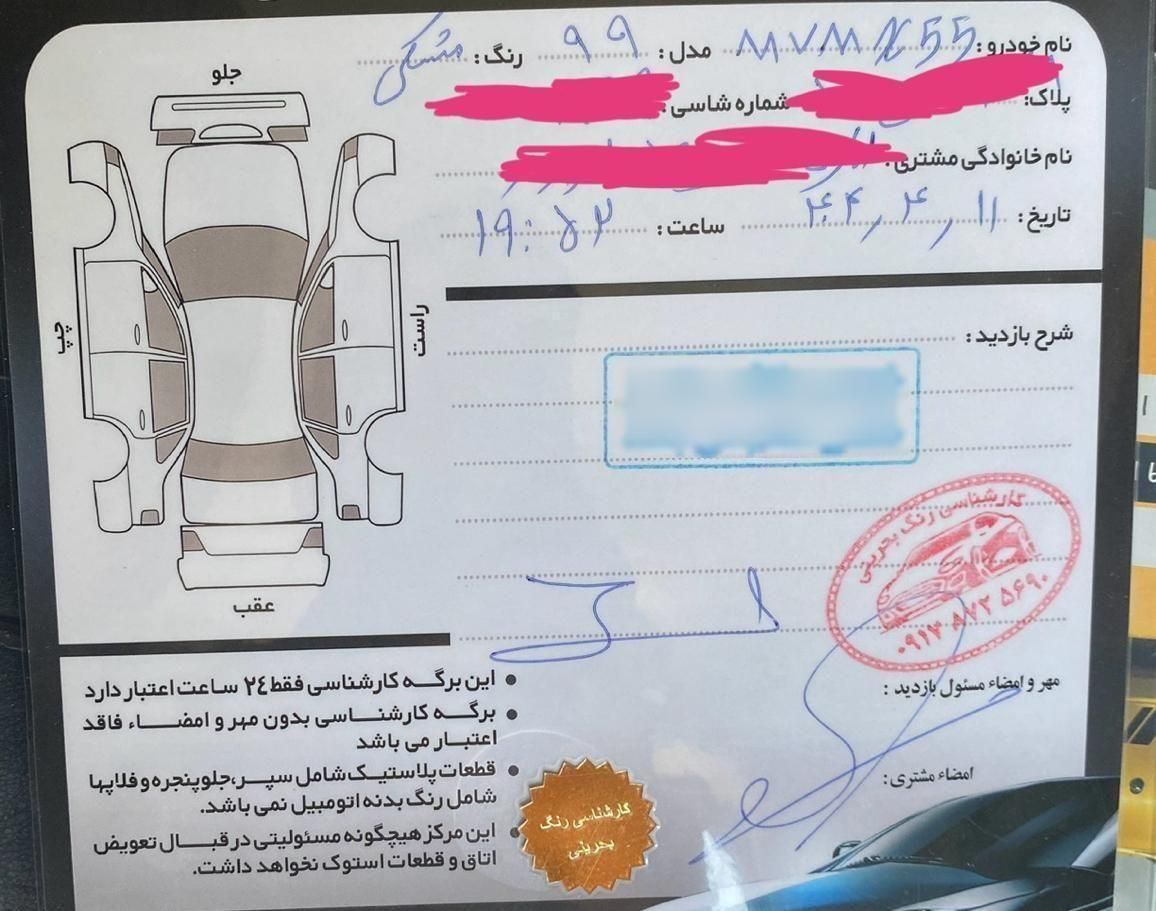 نام خودرو: MVM X55 مدل: ۹۹ رنگ: مشکی
پلاک: شماره شاسی:
نام خانوادگی مشتری:
تاریخ: ۱۱ ، ۴ ، ۴۰۴ ساعت: ۱۹:۵۳
جلو
چپ
راست
عقب
شرح بازدید:
کارشناسی رنگ بحرینی
۰۹۱۷ ۸۷۲ ۵۶۹۰
مهر و امضاء مسئول بازدید:
امضاء مشتری:
این برگه کارشناسی فقط ۲۴ ساعت اعتبار دارد
برگه کارشناسی بدون مهر و امضاء فاقد
اعتبار می باشد
قطعات پلاستیک شامل سپر،جلو پنجره و فلاپها
شامل رنگ بدنه اتومبیل نمی باشد.
این مرکز هیچگونه مسئولیتی در قبال تعویض
اتاق و قطعات استوک نخواهد داشت.
کارشناسی رنگ
بحرینی